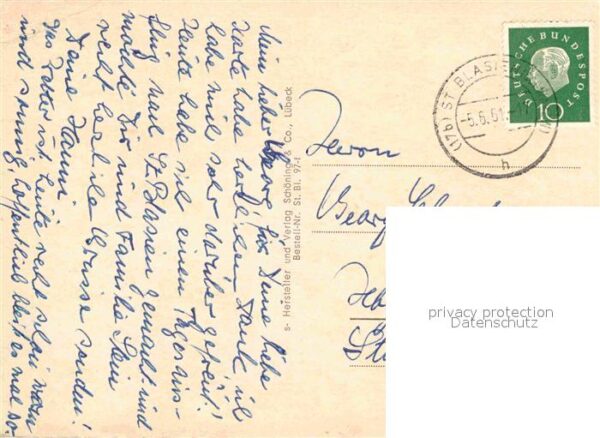 Mein lieber Georg, für Deine liebe
Karte habe herzlichen Dank ich
habe mich sehr darüber gefreut!
Heute habe ich einen Tagesaus-
flug nach St. Blasien gemacht und
möchte Dir und Familie Stein
recht herzliche Grüsse senden!
Deine Hanni
Das Wetter ist heute recht schön warm
und sonnig, hoffentlich bleibt es mal so.
s- Hersteller und Verlag Schöning & Co., Lübeck
Bestell-Nr. St. Bl. 97-f
DEUTSCHE BUNDESPOST
10
(17b) ST. BLASIEN
-5.6.61.
h
Herrn
Georg
privacy protection
Datenschutz